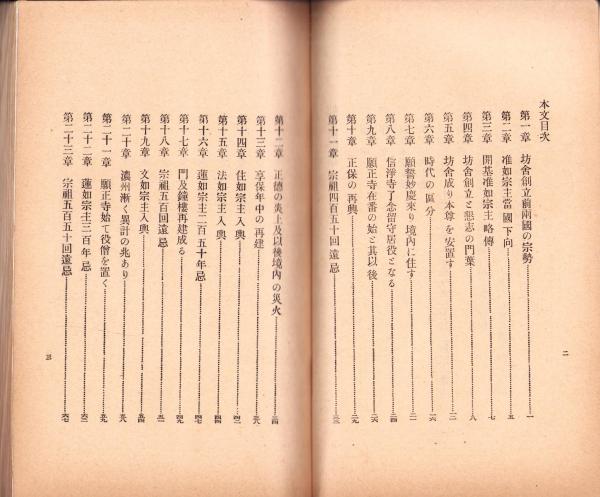 本文目次
第一章 坊舍創立前兩國の宗勢 一
第二章 准如宗主當國下向 五
第三章 開基准如宗主略傳 七
第四章 坊舍創立と懇志の門葉 八
第五章 坊舍成り本尊を安置す 一二
第六章 時代の區分 一六
第七章 願誓妙慶來り境內に住す 二一
第八章 信淨寺了念留守居役となる 二四
第九章 願正寺在番の始と其以後 二六
第十章 正保の再興 二九
第十一章 宗祖四百五十回遠忌 三三
二
第十二章 正德の炎上及以後境內の災火 三四
第十三章 享保年中の再建 三八
第十四章 住如宗主入輿 四二
第十五章 法如宗主入輿 四四
第十六章 蓮如宗主二百五十年忌 四七
第十七章 門及鐘樓再建成る 四九
第十八章 宗祖五百回遠忌 五一
第十九章 文如宗主入輿 五四
第二十章 濃州漸く異計の兆あり 五八
第二十一章 願正寺始て役僧を置く 五九
第二十二章 蓮如宗主三百年忌 六三
第二十三章 宗祖五百五十回遠忌 六七
三